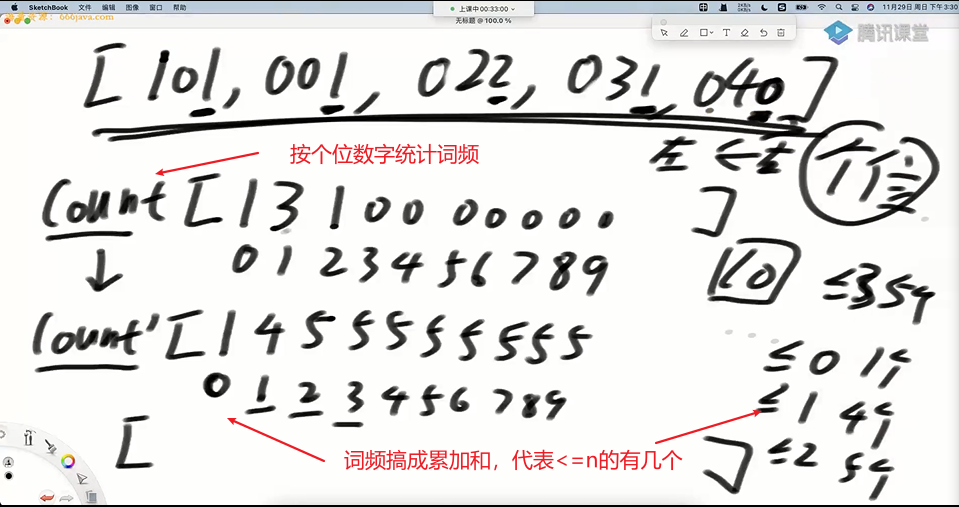 SketchBook 文件 编辑 图像 窗口 帮助
上课中 00:33:00
11月29日 周日 下午 3:30
666java.com
无标题 @ 100.0 %
腾讯课堂
[101, 001, 022, 031, 040]
左 ← 右
按个位数字统计词频
count [1 3 1 0 0 0 0 0 0 0]
0 1 2 3 4 5 6 7 8 9
10
≤3 5个
count' [1 4 5 5 5 5 5 5 5 5
0 1 2 3 4 5 6 7 8 9
≤0 1个
≤1 4个
≤2 5个
词频搞成累加和，代表<=n的有几个
[ ]